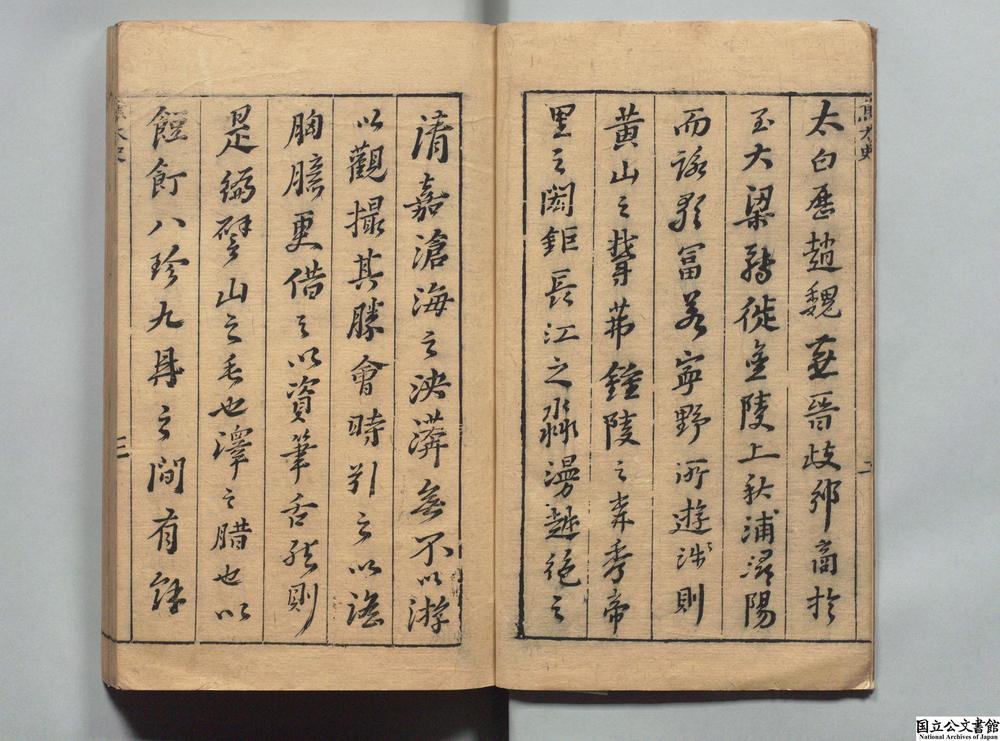 太白歷趙魏燕晉歧邠商於
至大梁轉徙金陵上秋浦潯陽
而詠歌冨若寧野所遊涉則
黃山之茀鍾陵之森秀帝
里之閎鉅長江之淼漫越絕之
二
清嘉滄海之泱漭無不以游
以觀撮其勝會時引之以
胸臆更借之以資筆舌然則
是編譬山之毛也澤之腊也以
餖飣八珍九鼎之間有餘
三
国立公文書館
National Archives of Japan